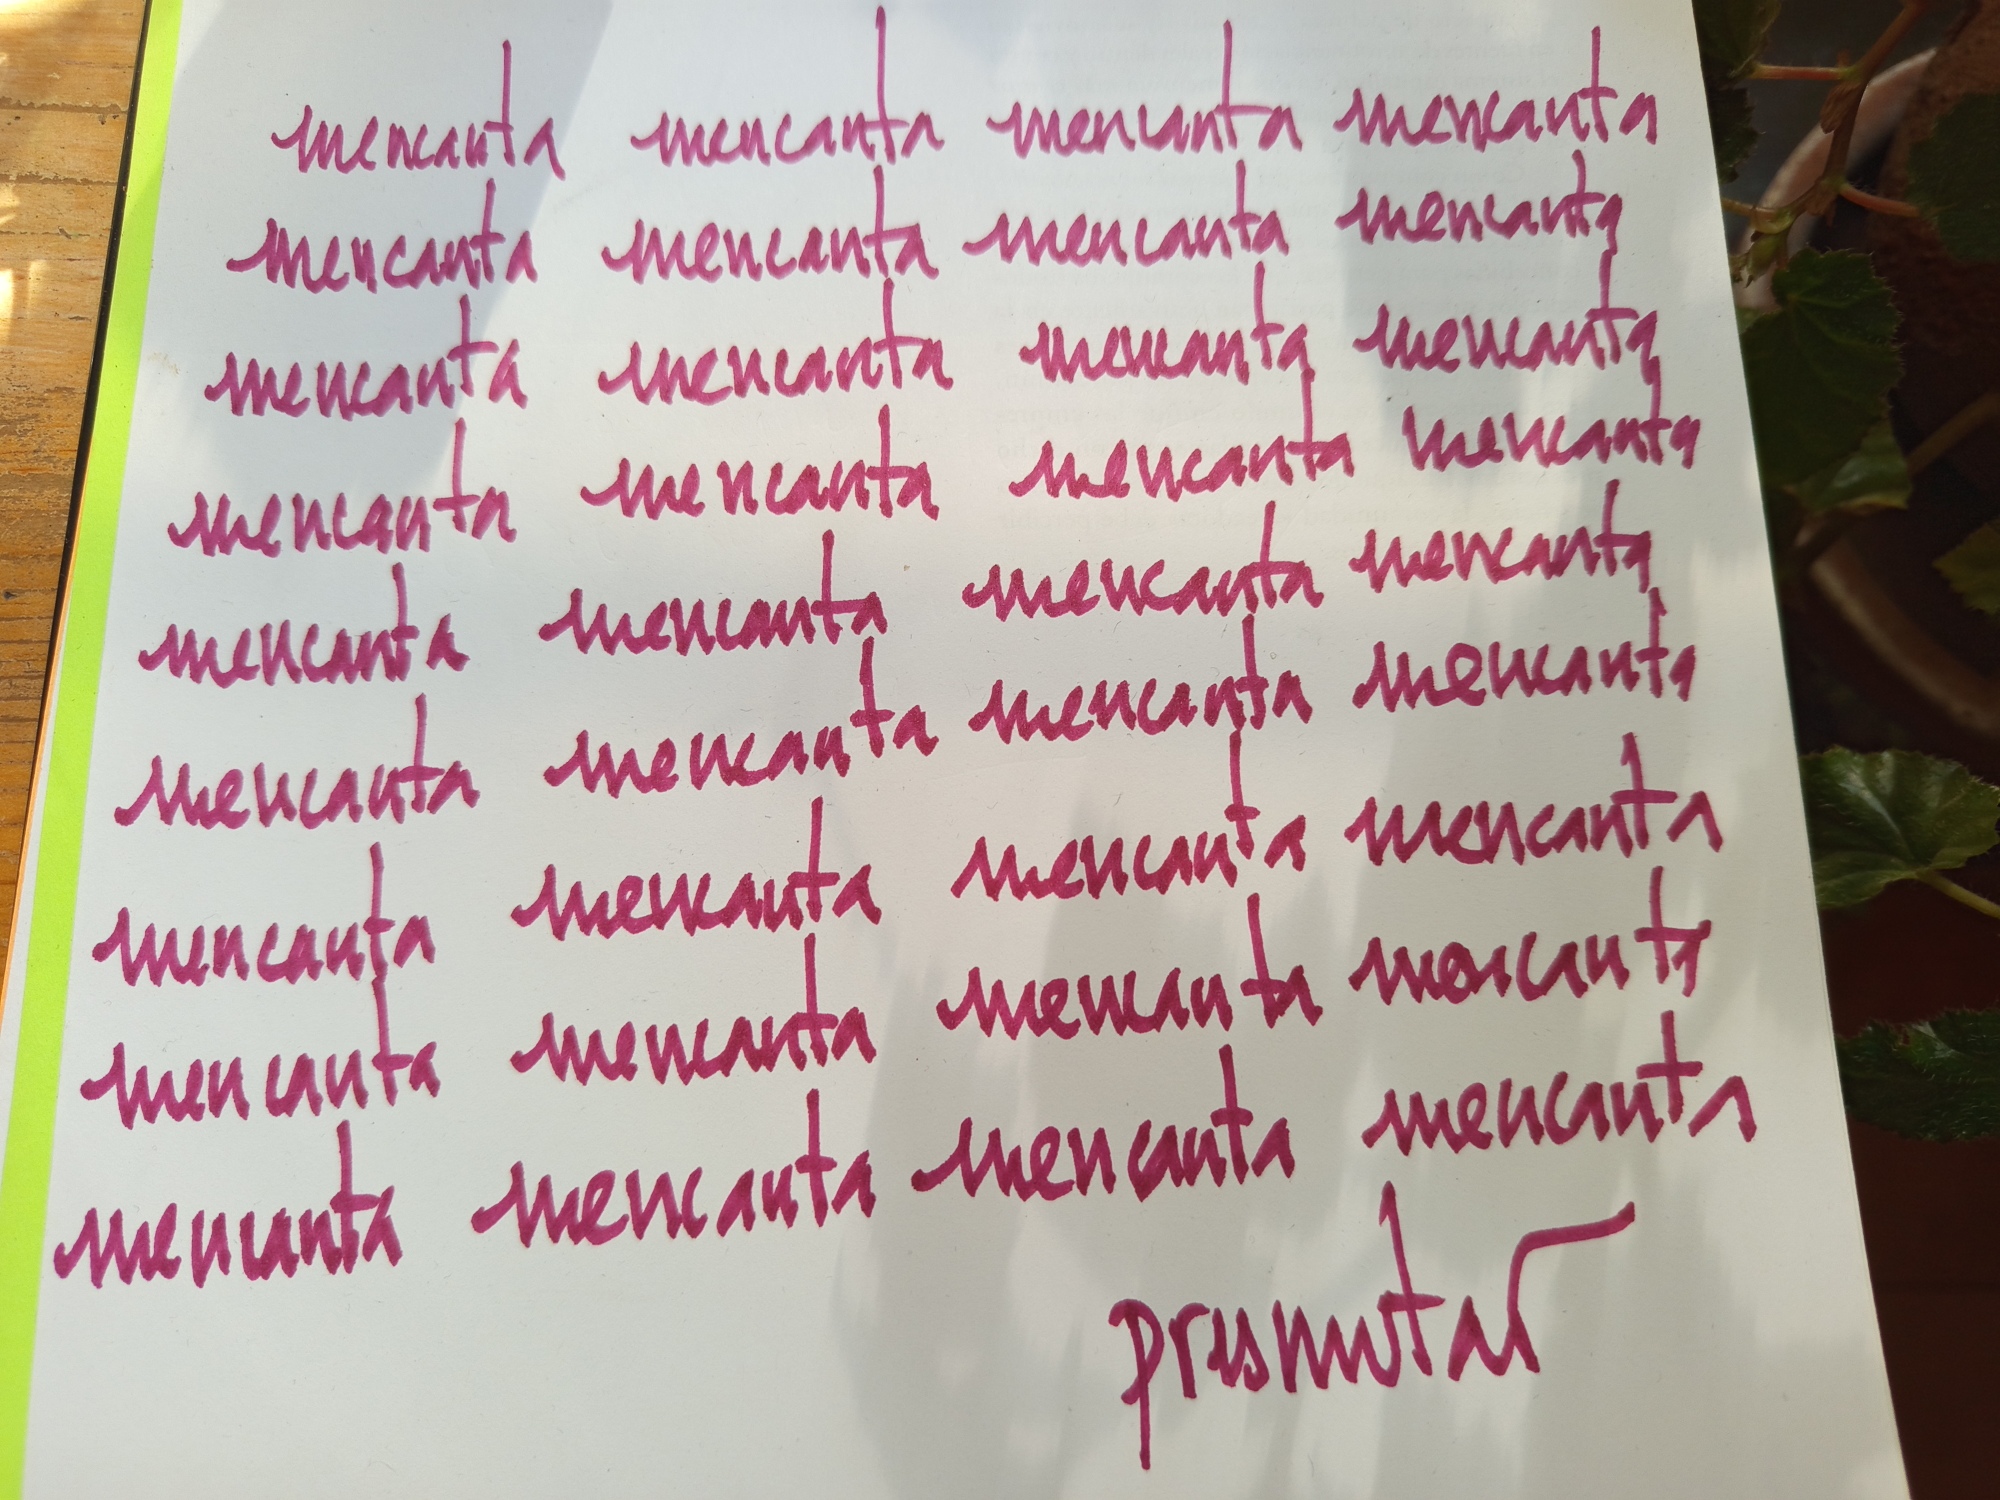 mencanta mencanta mencanta mencanta
mencanta mencanta mencanta mencanta
mencanta mencanta mencanta mencanta
mencanta mencanta mencanta mencanta
mencanta mencanta mencanta mencanta
mencanta mencanta mencanta mencanta
mencanta mencanta mencanta mencanta
mencanta mencanta mencanta mencanta
mencanta mencanta mencanta mencanta